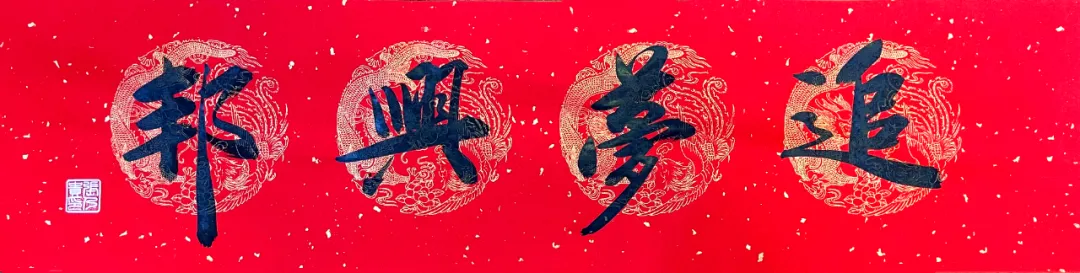 追夢興邦